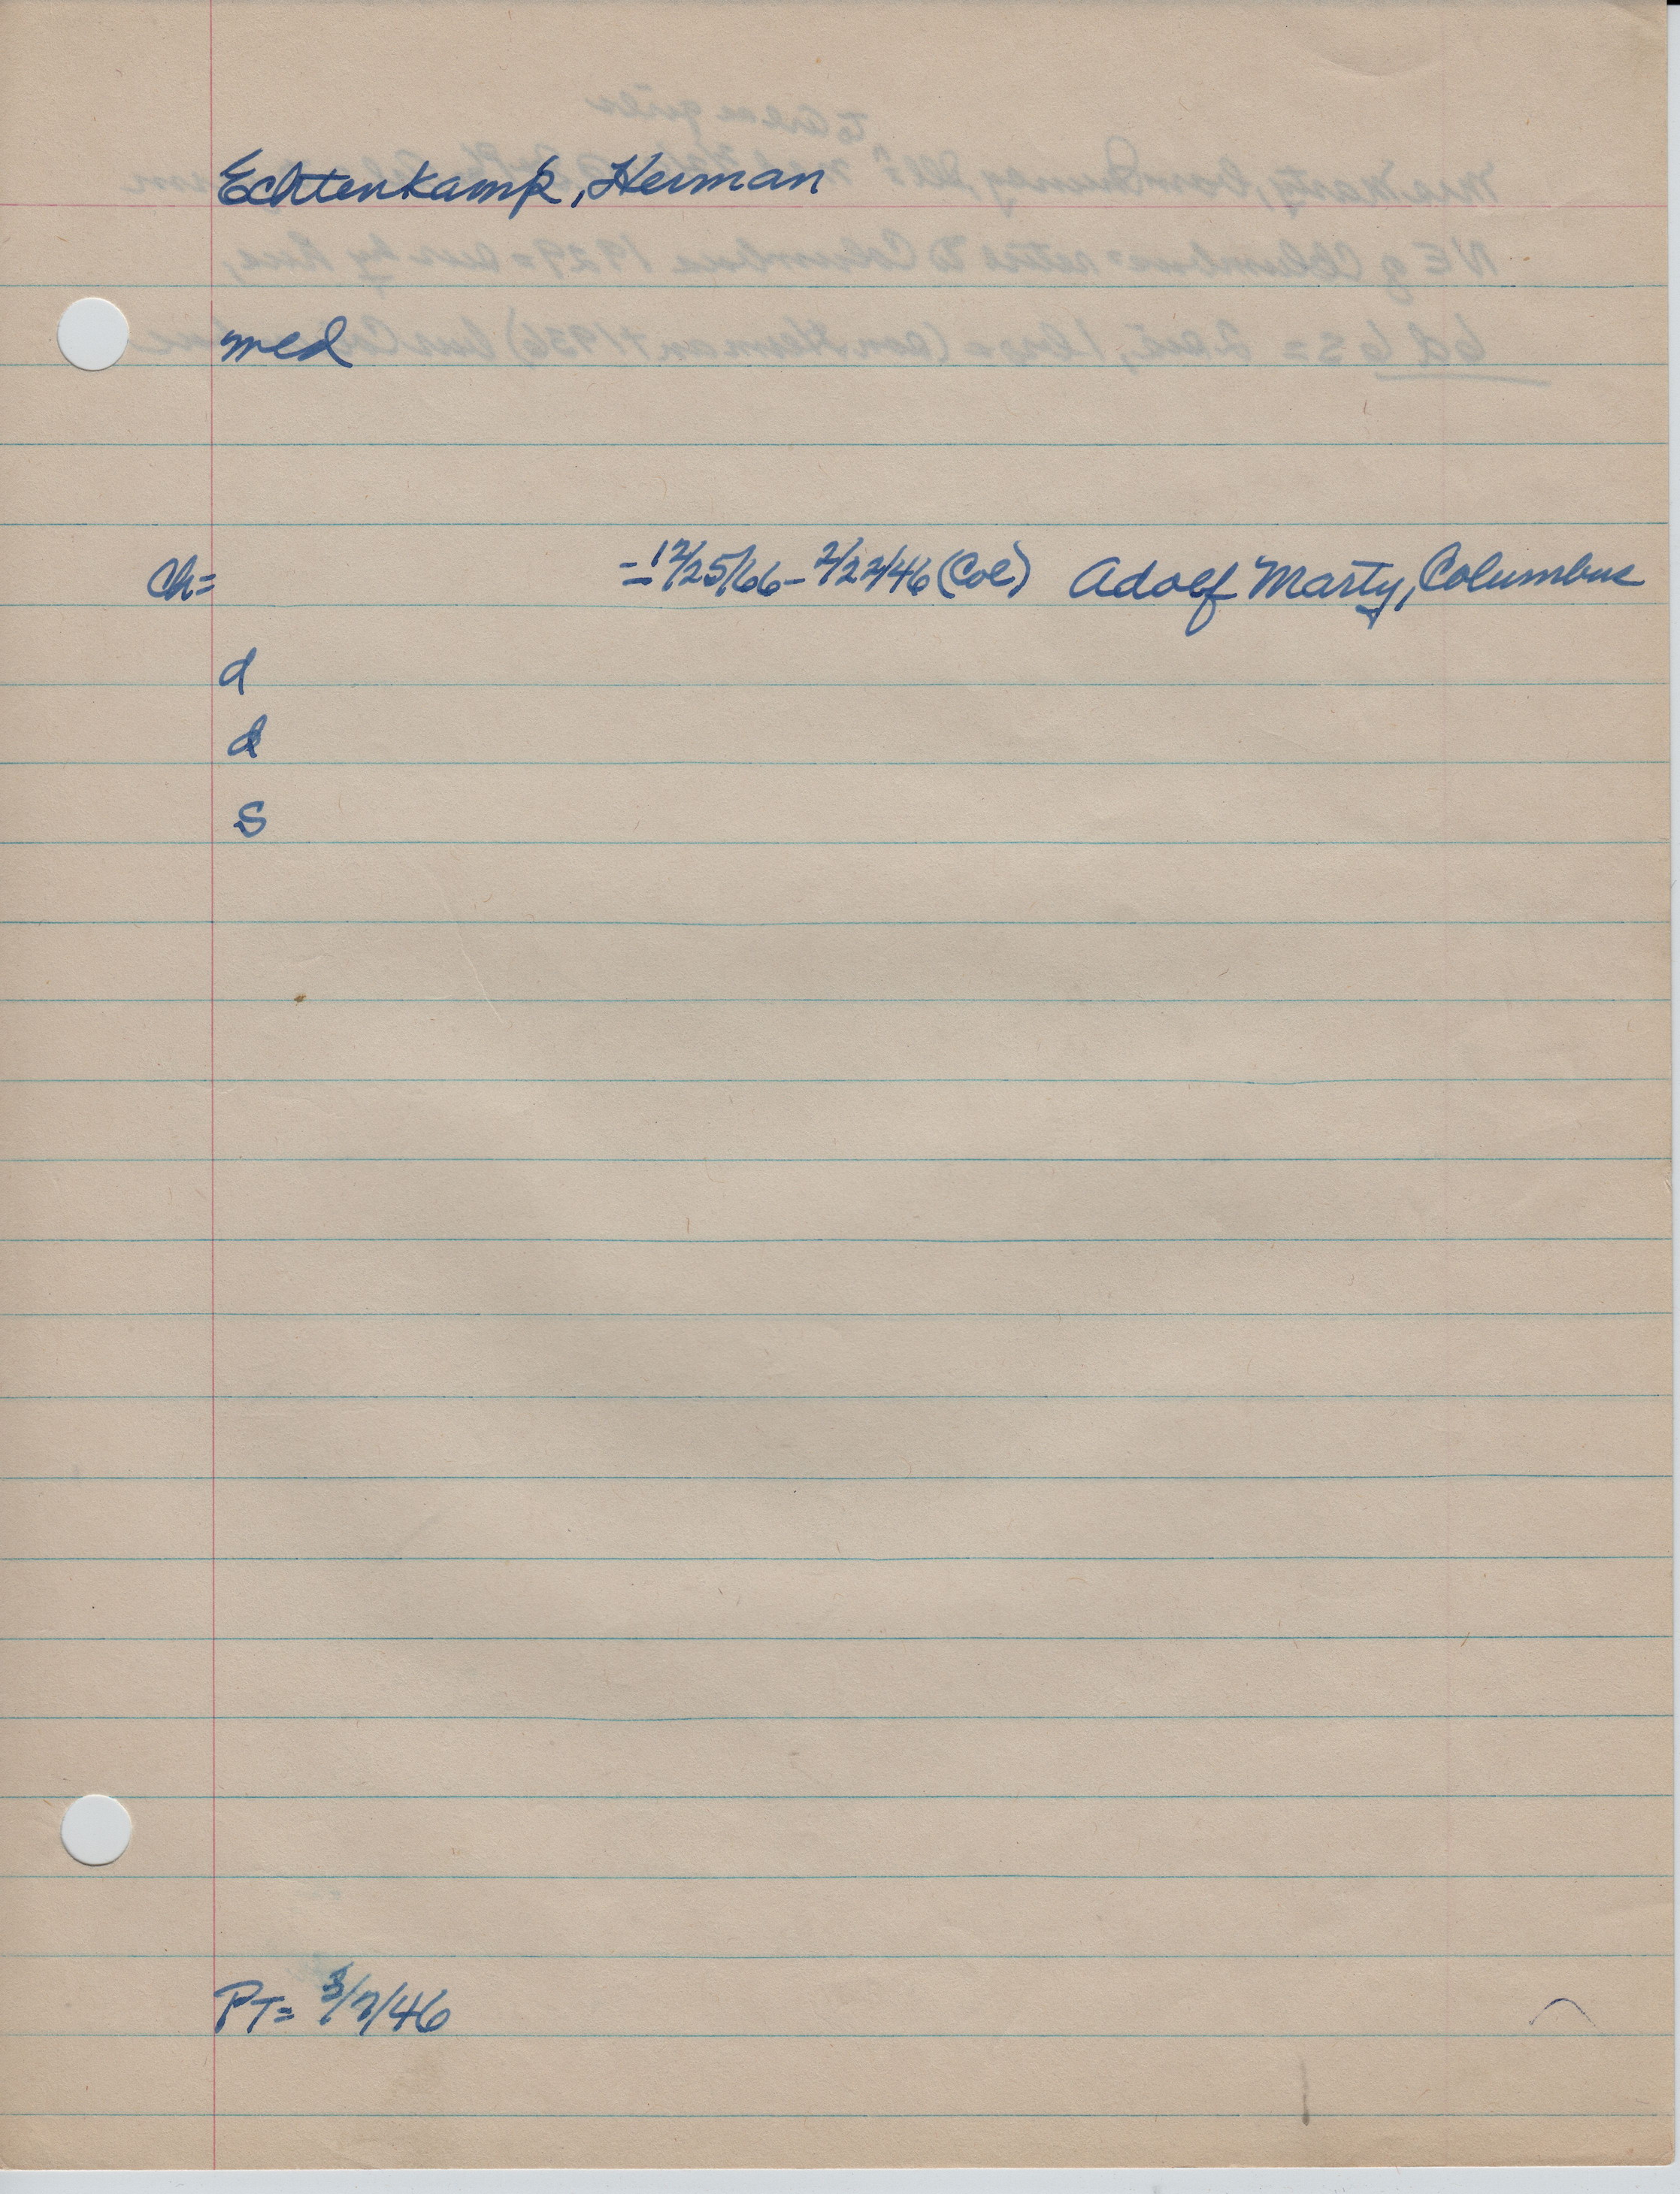 Echtenkamp, Herman
med
Ch= =12/25/66-2/22/46 (Col) Adolf Marty, Columbus
d
d
s
PT= 3/7/46